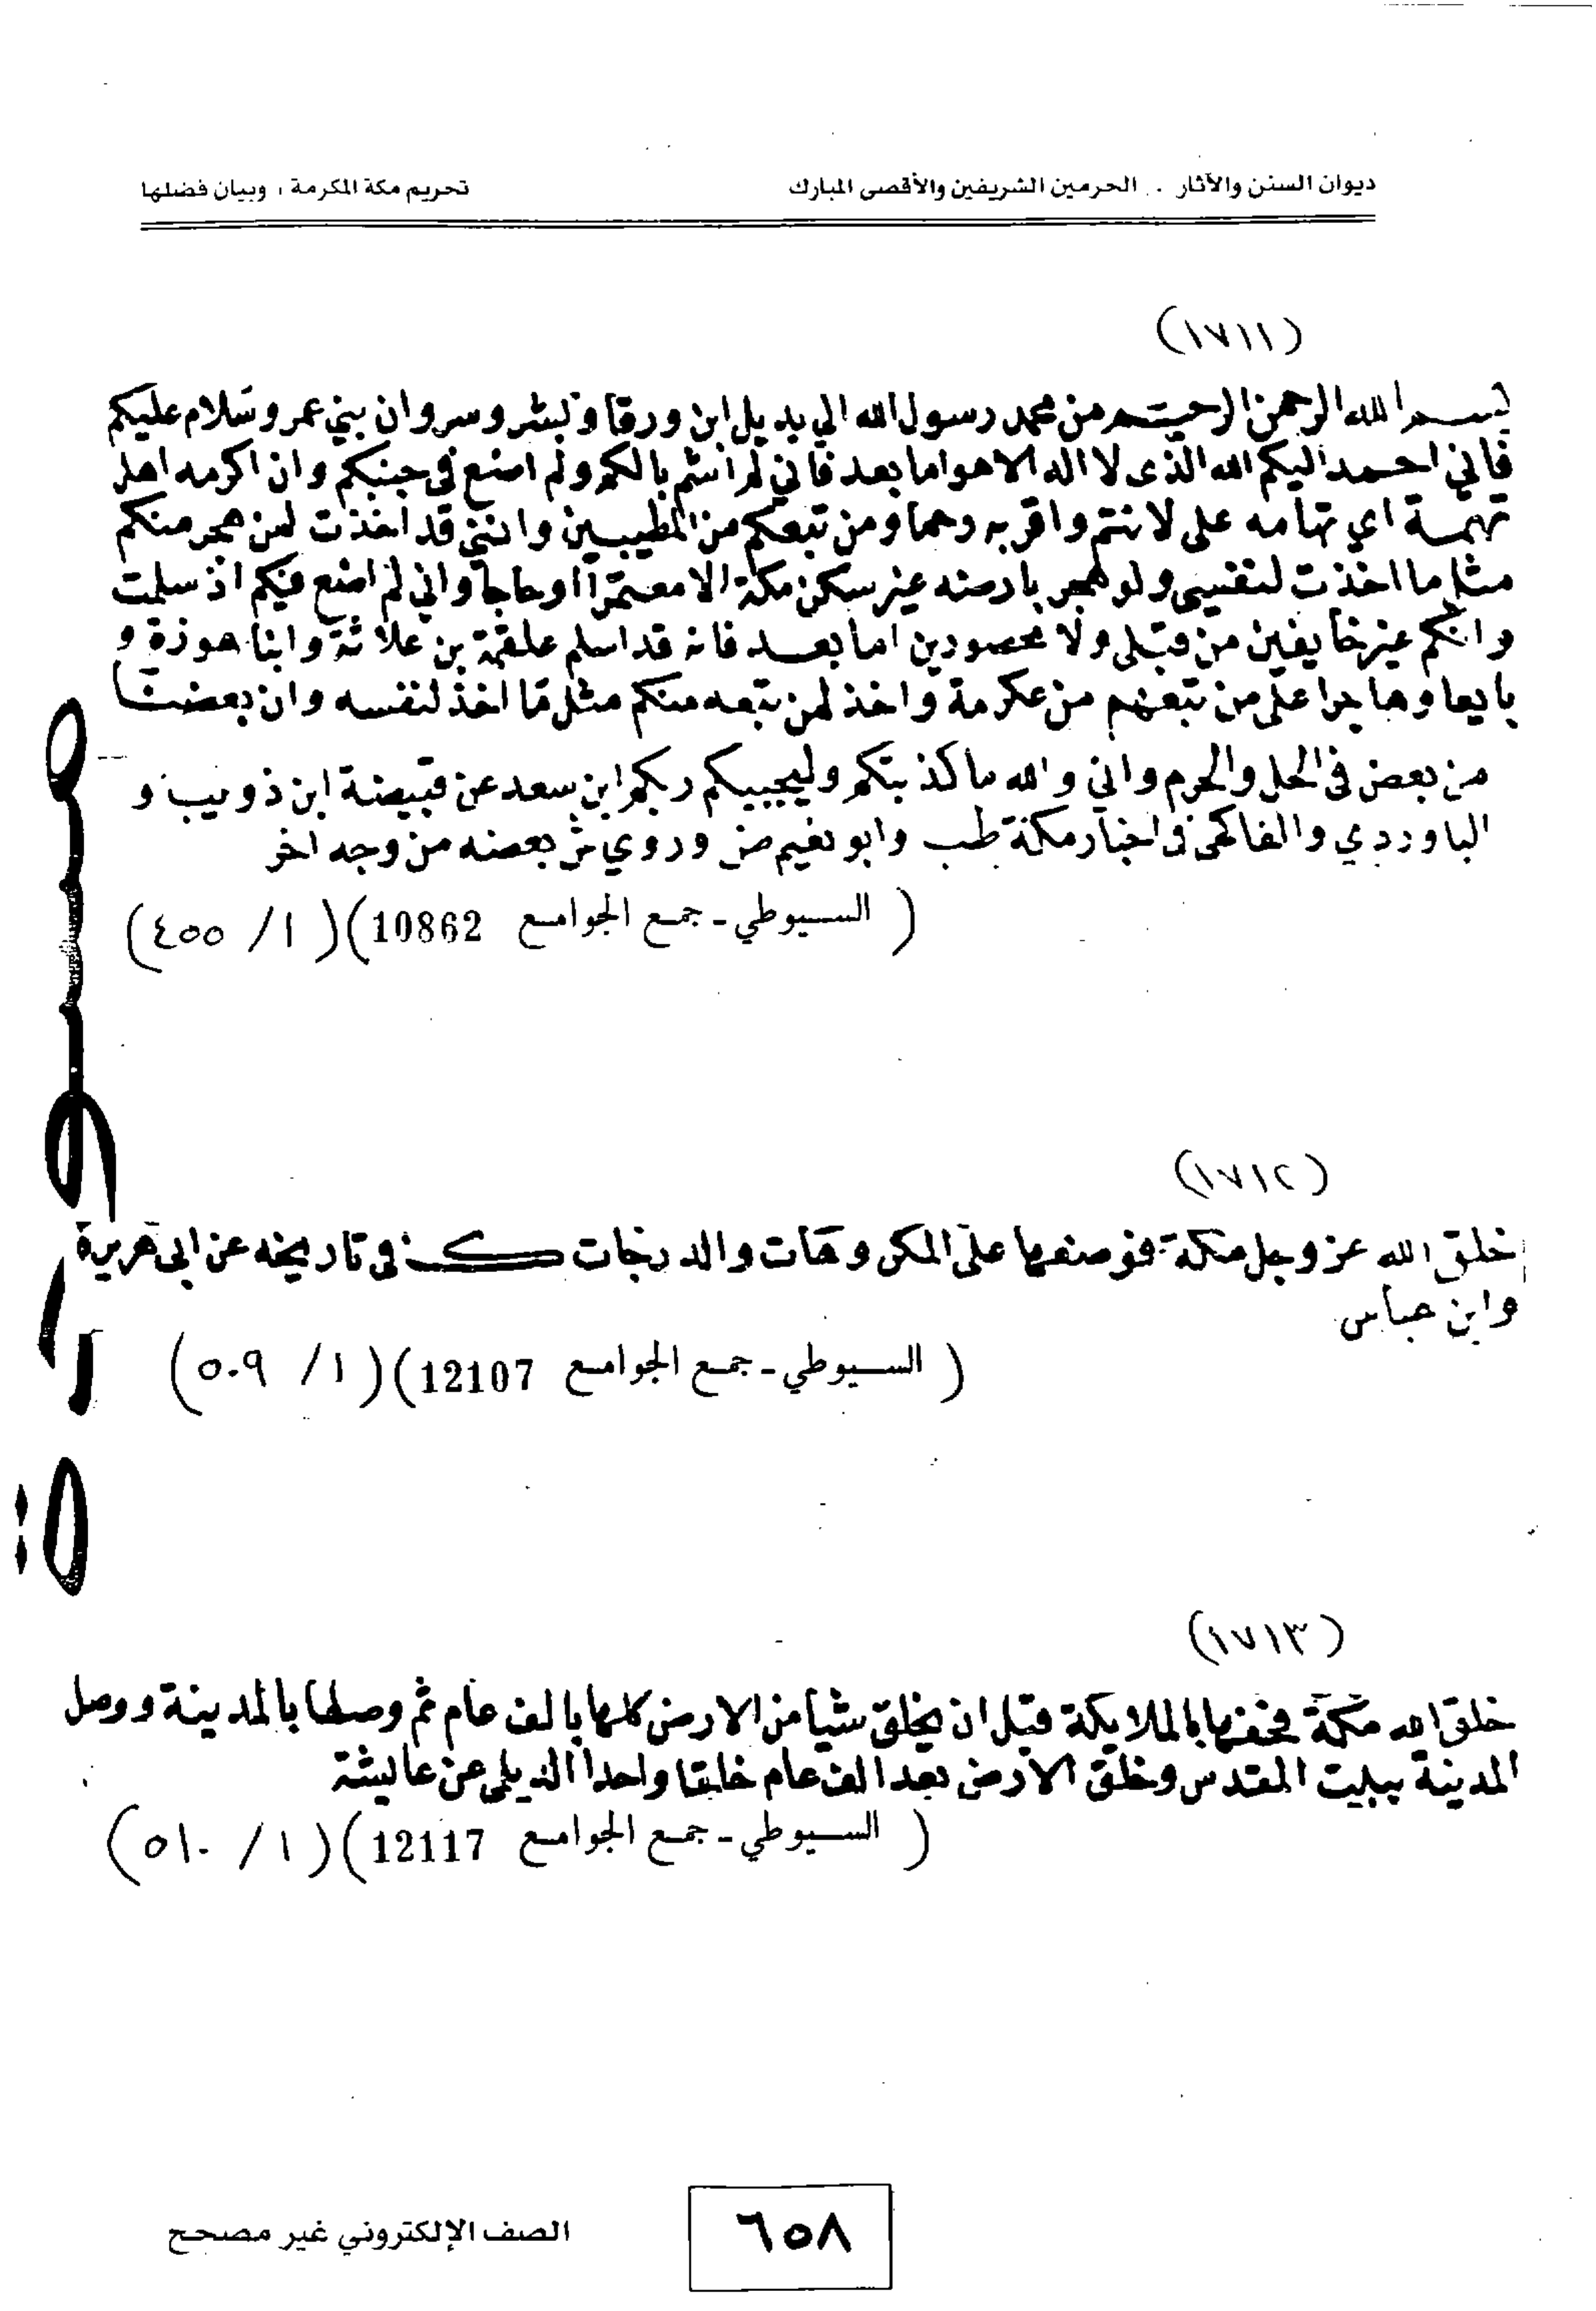 ديوان السنن والآثار . . الحرمين الشريفين والأقصى المبارك تحريم مكة المكرمة ، وبيان فضلها
(١٧١١)
بسم الله الرحمن الرحيم من محمد رسول الله الي بديل ابن ورقا و بشر وسروان بني عمرو سلام عليكم
فاني احمد اليكم الله الذى لا اله الا هو اما بعد فاني لم اثم بالكم ولم اضع فى جنبكم وان اكرمه اهل
تهمة اي تهامه على لانتم واقربه رحما ومن تبعكم من المطيبين وانني قد اخذت لمن هجر منكم
مثل ما اخذت لنفسى ولو هجر بارضه غير سكن مكة الا معتمرا او حاجا واني لم اضع فيكم اذ سلمت
وانكم غير خايفين من قبلى ولا محصورين اما بعد فانه قد اسلم علقمة بن علاثة وابنا هوزة و
بايعا وهاجرا على من تبعهم من عكرمة واخذ لمن تبعه منكم مثل ما اخذ لنفسه وان بعضنا
من بعض فى الحل والحرم واني والله ما كذبتكم وليحببكم ربكم ابن سعد عن قبيصة ابن ذويب و
الباوردي والفاكهى فى اخبار مكة طب وابو نعيم ض وروي ش بعضه من وجه اخر
( السيوطي - جمع الجوامع 10862)(١ / ٤٥٥)
(١٧١٢)
خلق الله عز وجل مكة فوضعها على المكروهات والدرجات ك فى تاريخه عن ابى هريرة
وابن عباس
( السيوطي - جمع الجوامع 12107)(١ / ٥٠٩)
(١٧١٣)
خلق الله مكة فحفها بالملايكة قبل ان يخلق شيا من الارض كلها بالف عام ثم وصلها بالمدينة ووصل
المدينة ببيت المقدس وخلق الارض بعد الف عام خلقا واحدا الديلمى عن عايشة
( السيوطي - جمع الجوامع 12117)(١ / ٥١٠)
٦٥٨ الصف الإلكتروني غير مصحح